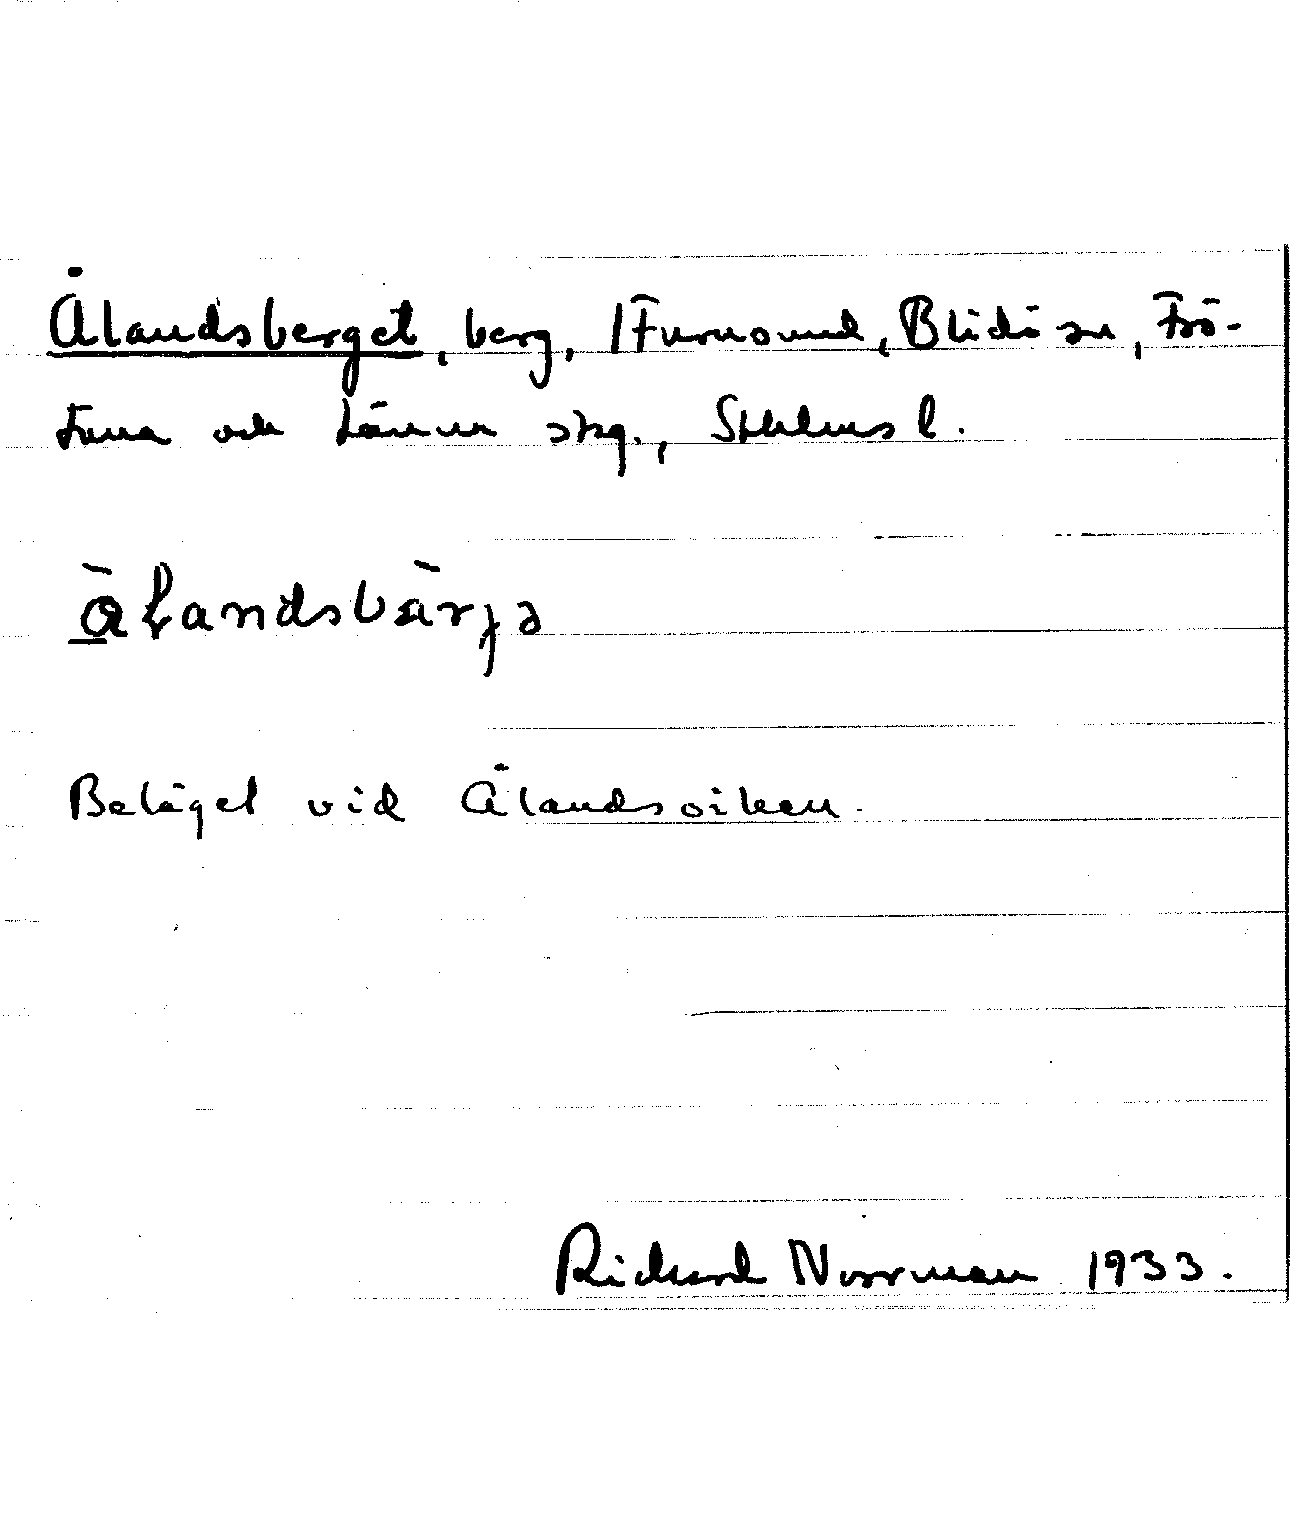 Ålandsberget, berg, /Furusund, Blidö sn, Frö-
tuna och Länna skg., Sthlms l.
ålandsbärjə
Beläget vid Ålandsviken.
Richard Norrman 1933.